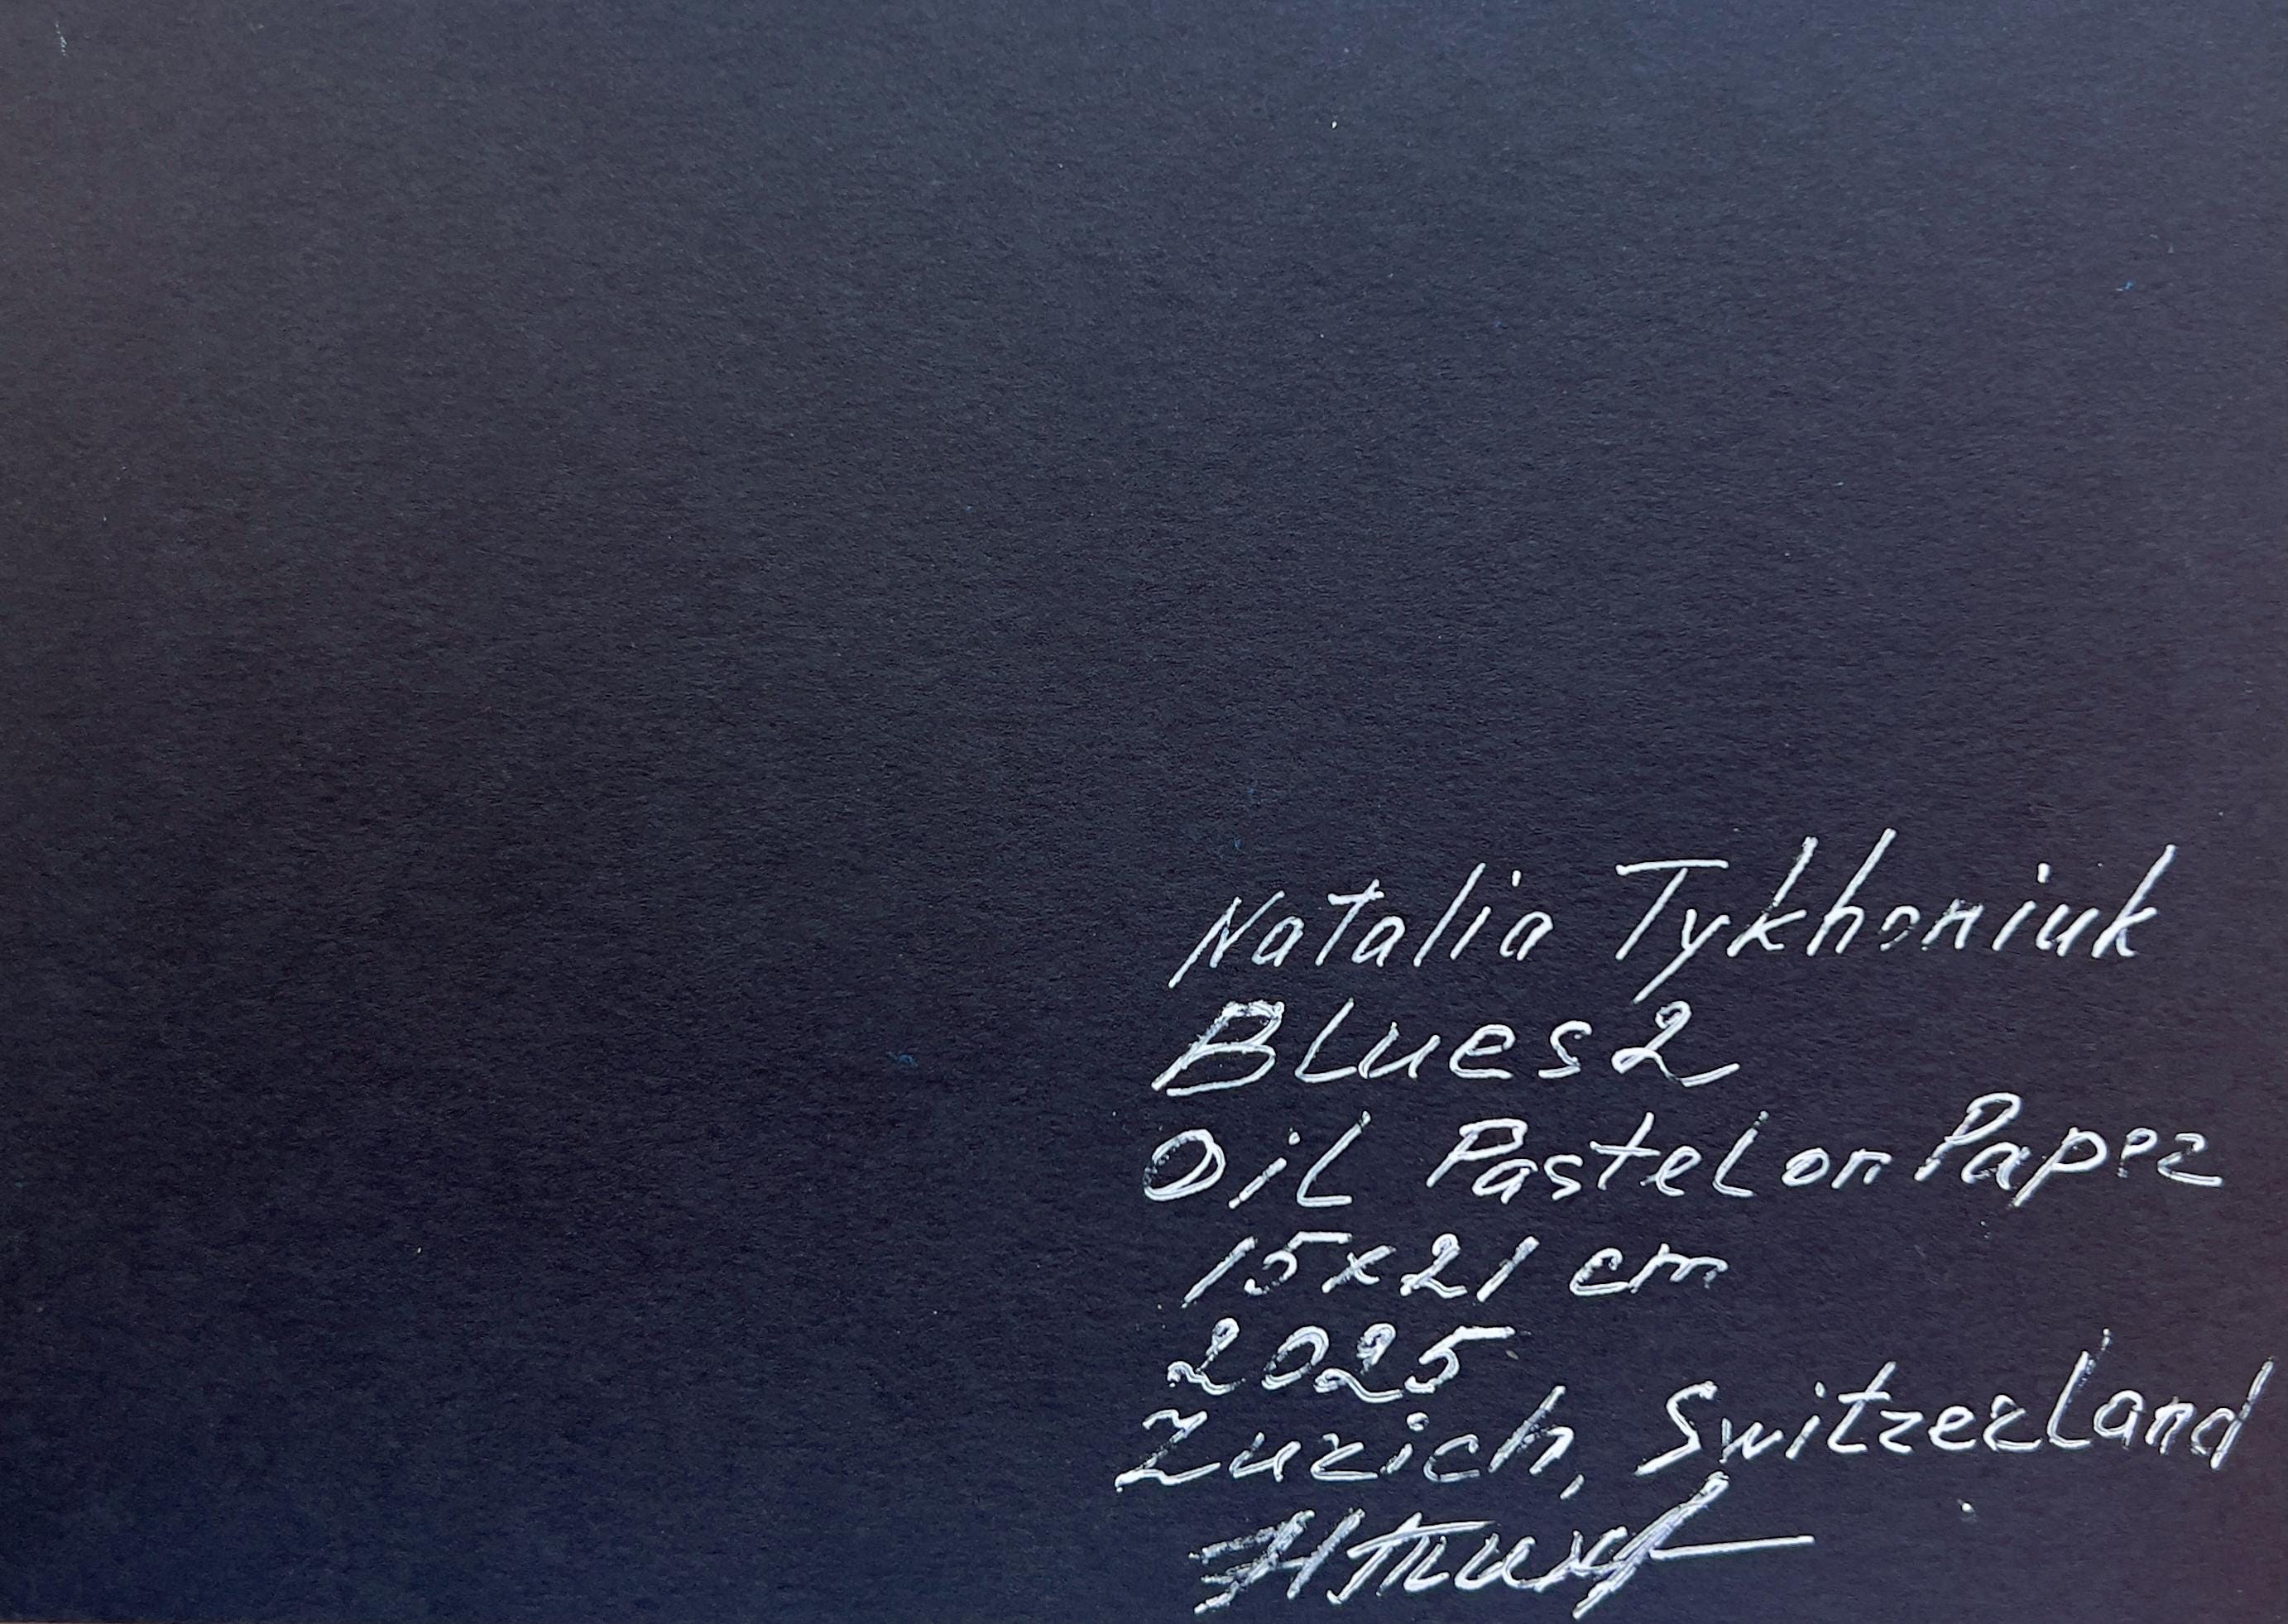 Natalia Tykhoniuk
Blues 2
Oil Pastel on Paper
15x21 cm
2025
Zurich, Switzerland